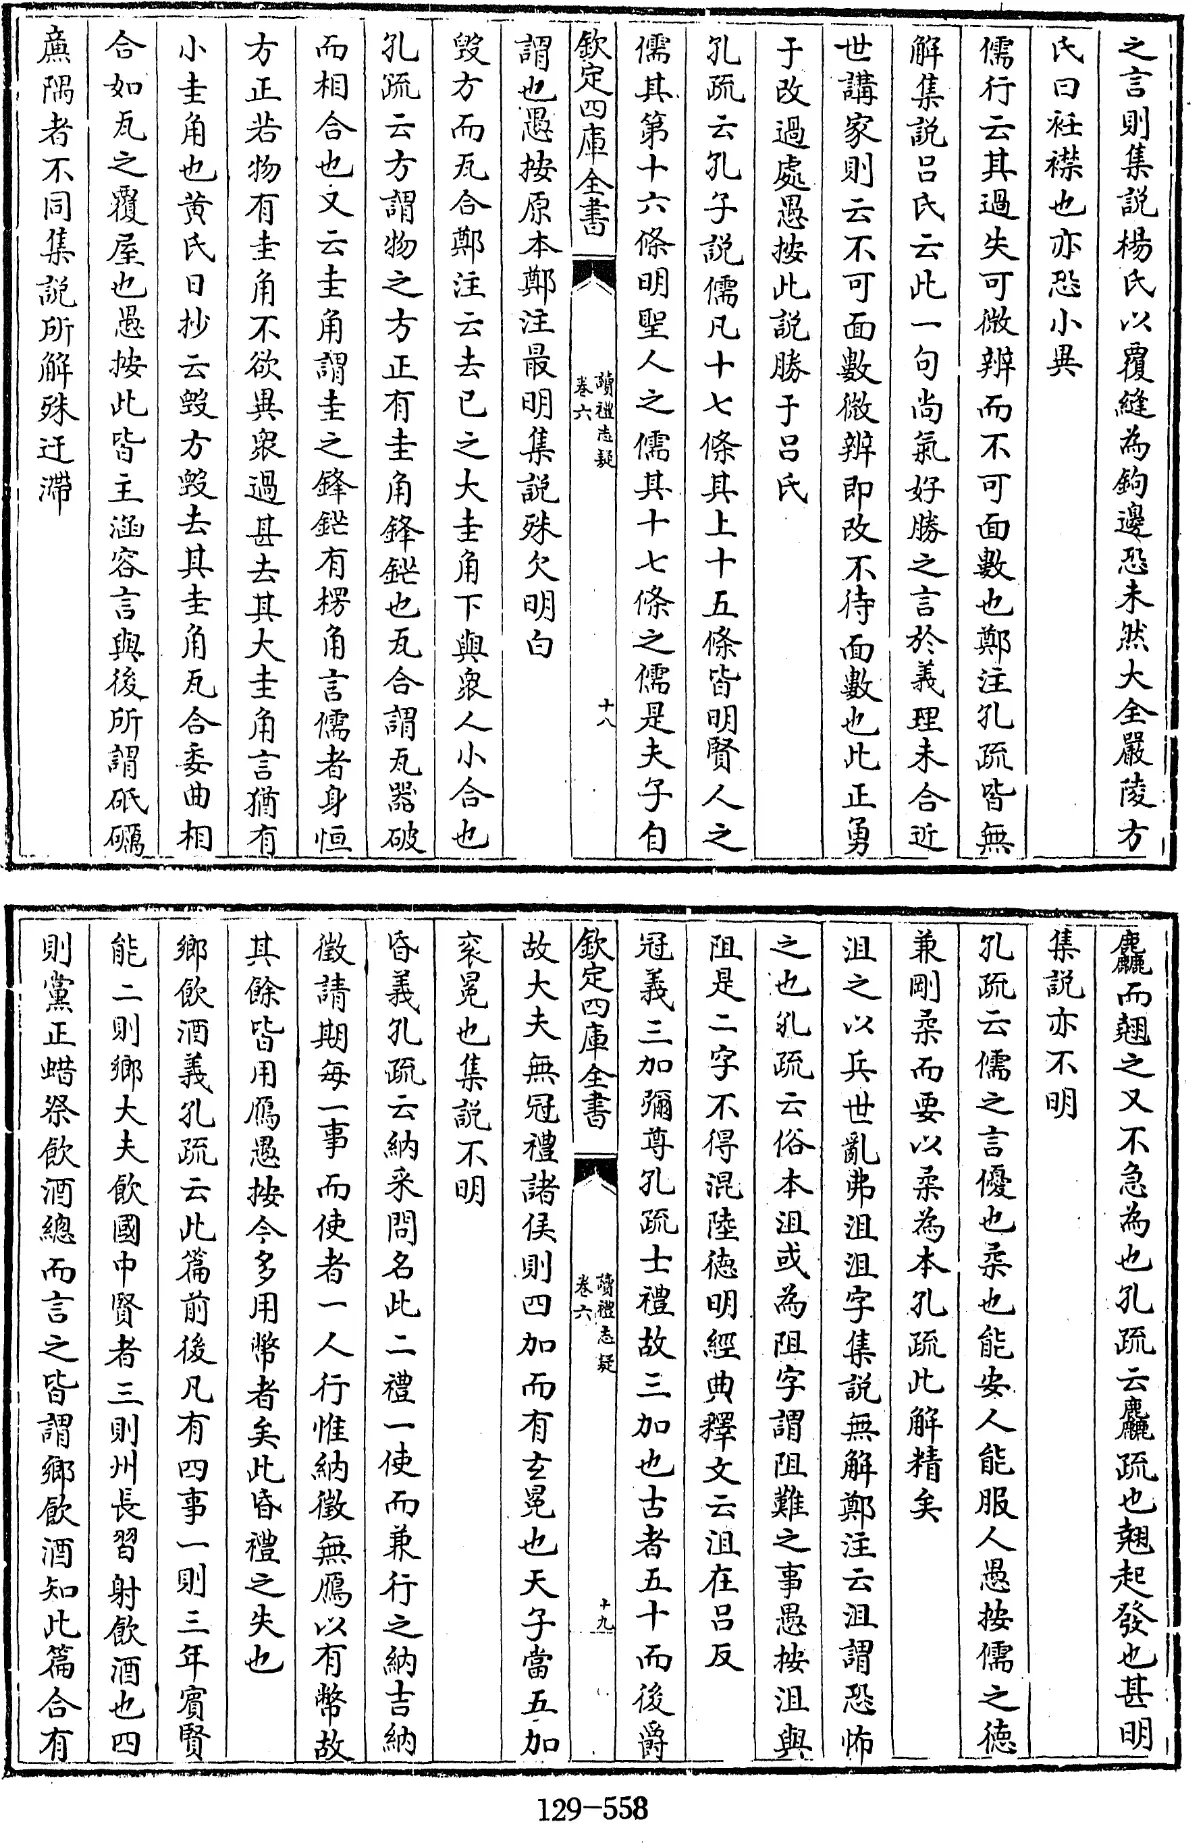 之言則集説楊氏以覆縫為鉤邊恐未然大全嚴陵方
氏曰衽襟也亦恐小異
儒行云其過失可微辨而不可面數也鄭注孔疏皆無
解集説吕氏云此一句尚氣好勝之言於義理未合近
世講家則云不可面數微辨即改不待面數也此正勇
于改過處愚按此説勝于吕氏
孔疏云孔子説儒凡十七條其上十五條皆明賢人之
儒其第十六條明聖人之儒其十七條之儒是夫子自
欽定四庫全書
讀禮志疑
卷六
十八
謂也愚按原本鄭注最明集説殊欠明白
毀方而瓦合鄭注云去己之大圭角下與衆人小合也
孔疏云方謂物之方正有圭角鋒鋩也瓦合謂瓦器破
而相合也又云圭角謂圭之鋒鋩有楞角言儒者身恒
方正若物有圭角不欲異衆過甚去其大圭角言猶有
小圭角也黄氏日抄云毀方毀去其圭角瓦合委曲相
合如瓦之覆屋也愚按此皆主涵容言與後所謂砥礪
廉隅者不同集説所解殊迂滯
麤而翹之又不急為也孔疏云麤疏也翹起發也甚明
集説亦不明
孔疏云儒之言優也柔也能安人能服人愚按儒之德
兼剛柔而要以柔為本孔疏此解精矣
沮之以兵世亂弗沮沮字集説無解鄭注云沮謂恐怖
之也孔疏云俗本沮或為阻字謂阻難之事愚按沮與
阻是二字不得混陸德明經典釋文云沮在吕反
冠義三加彌尊孔疏士禮故三加也古者五十而後爵
欽定四庫全書
讀禮志疑
卷六
十九
故大夫無冠禮諸侯則四加而有玄冕也天子當五加
衮冕也集説不明
昏義孔疏云納采問名此二禮一使而兼行之納吉納
徵請期每一事而使者一人行惟納徵無鴈以有幣故
其餘皆用鴈愚按今多用幣者矣此昏禮之失也
鄉飲酒義孔疏云此篇前後凡有四事一則三年賓賢
能二則鄉大夫飲國中賢者三則州長習射飲酒也四
則黨正蜡祭飲酒總而言之皆謂鄉飲酒知此篇合有
129-558